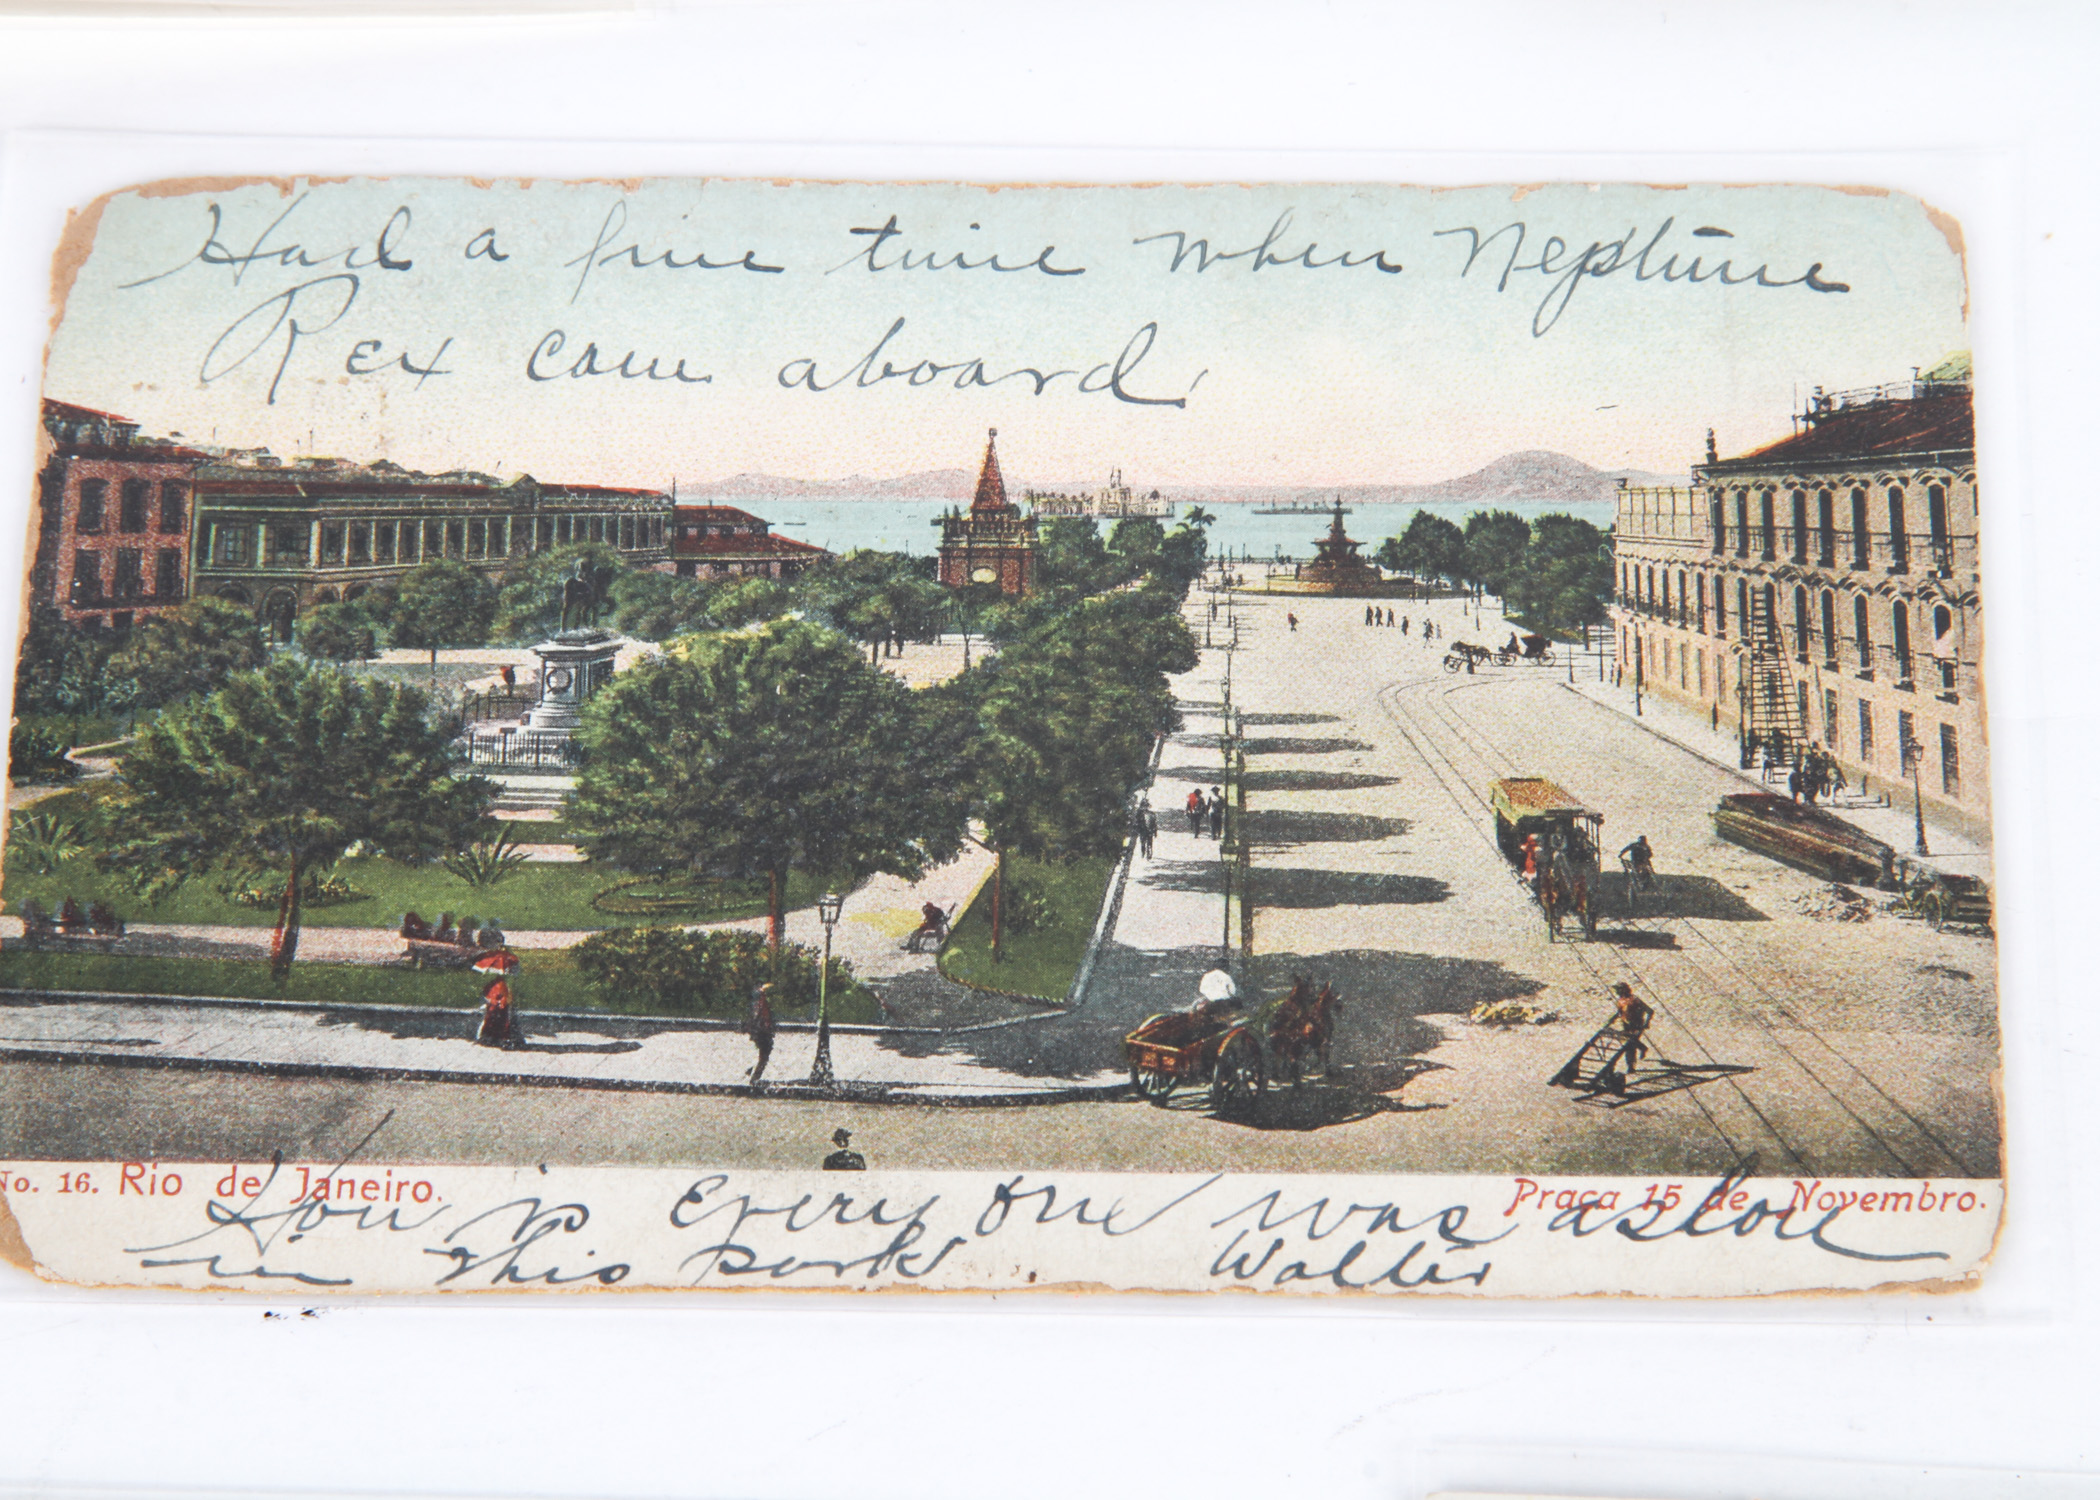 Had a fine time when Neptune
Rex came aboard.
No. 16. Rio de Janeiro.
Praça 15 de Novembro.
How is Every one was
in this park. Walter